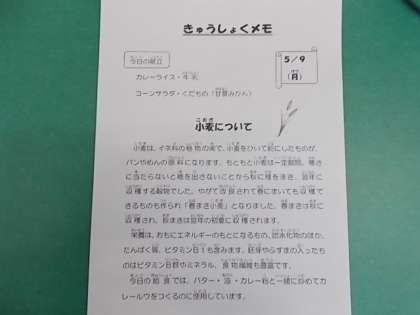 きゅうしょくメモ
今日の献立
5／9
（月）
カレーライス・牛乳
コーンサラダ・くだもの（甘夏みかん）
小麦について
小麦は、イネ科の植物の実で、小麦をひいて粉にしたものが、
パンやめんの原料になります。もともと小麦は一定期間、寒さ
に当たらないと穂を出さないことから秋に種をまき、翌年に
収穫する穀物でした。やがて改良されて春にまいても収穫で
きるものも作られ「春まき小麦」となりました。春まきは秋に
収穫され、秋まきは翌年の初夏に収穫されます。
栄養は、おもにエネルギーのもとになるもの、炭水化物のほか、
たんぱく質、ビタミンB1も含みます。胚芽やふすまの入ったも
のはビタミンB群やミネラル、食物繊維も豊富です。
今日の給食では、バター・油・カレー粉と一緒に炒めてカ
レールウをつくるのに使用しています。